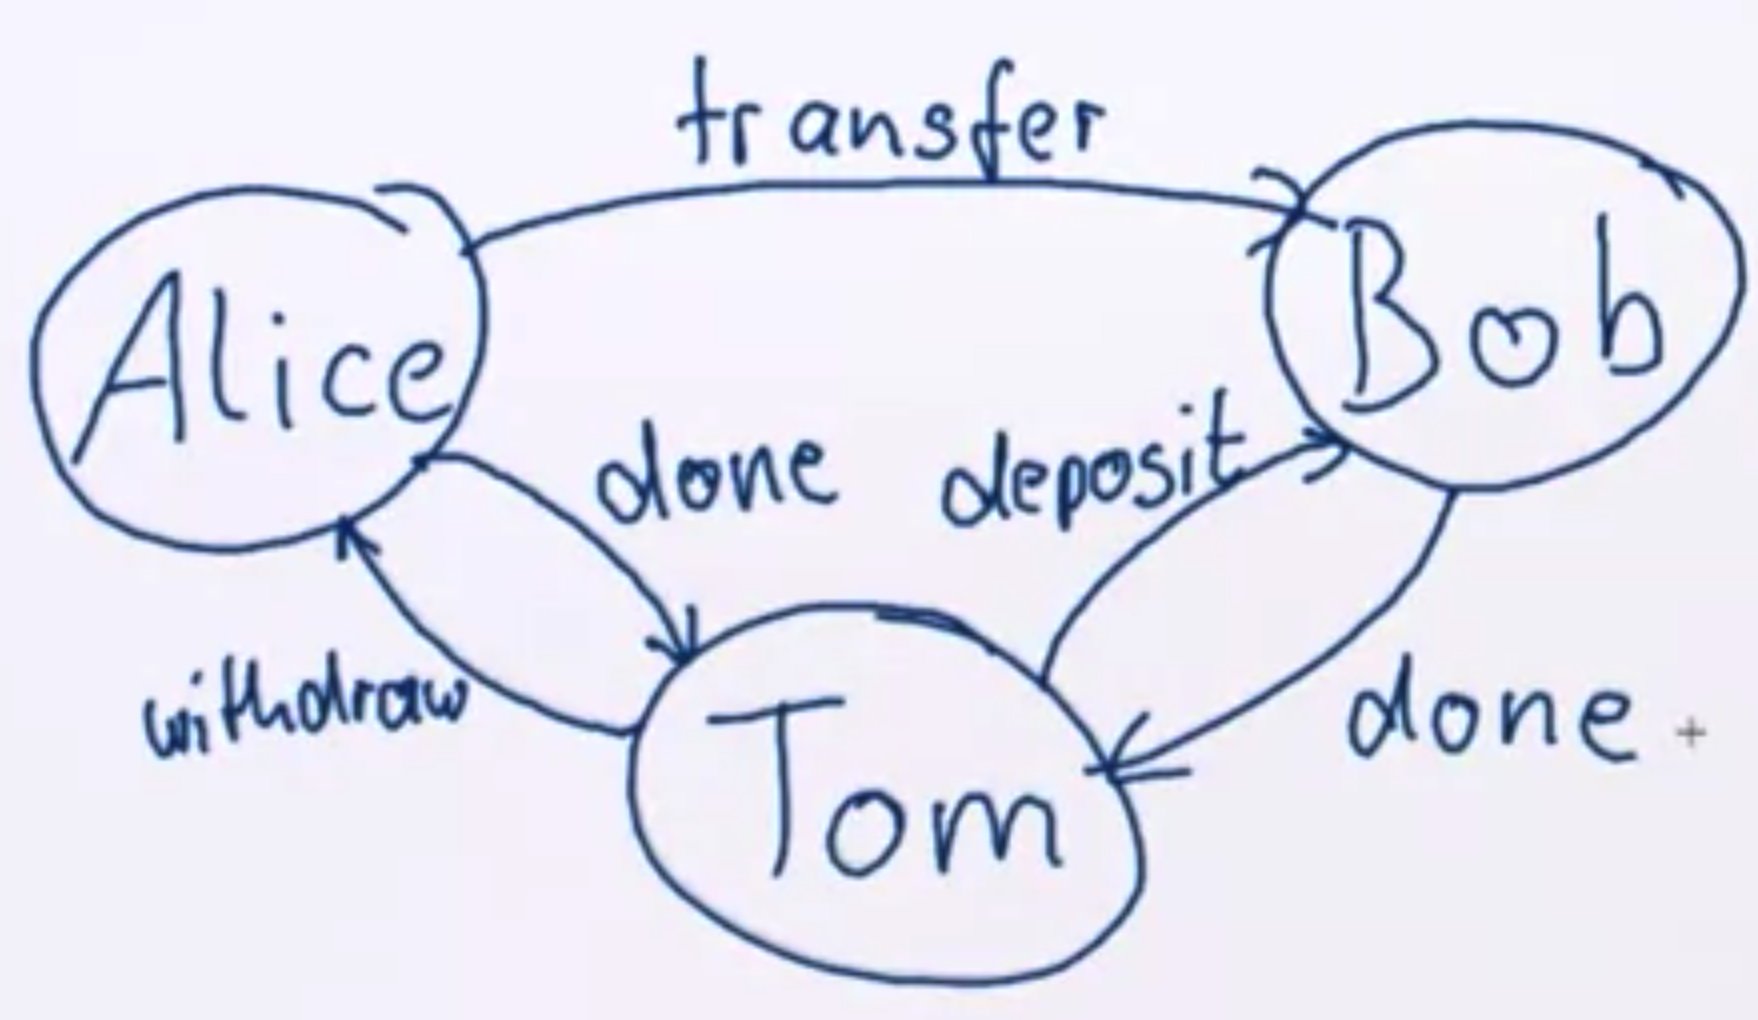 transfer
Alice
Bob
done
deposit
withdraw
Tom
done